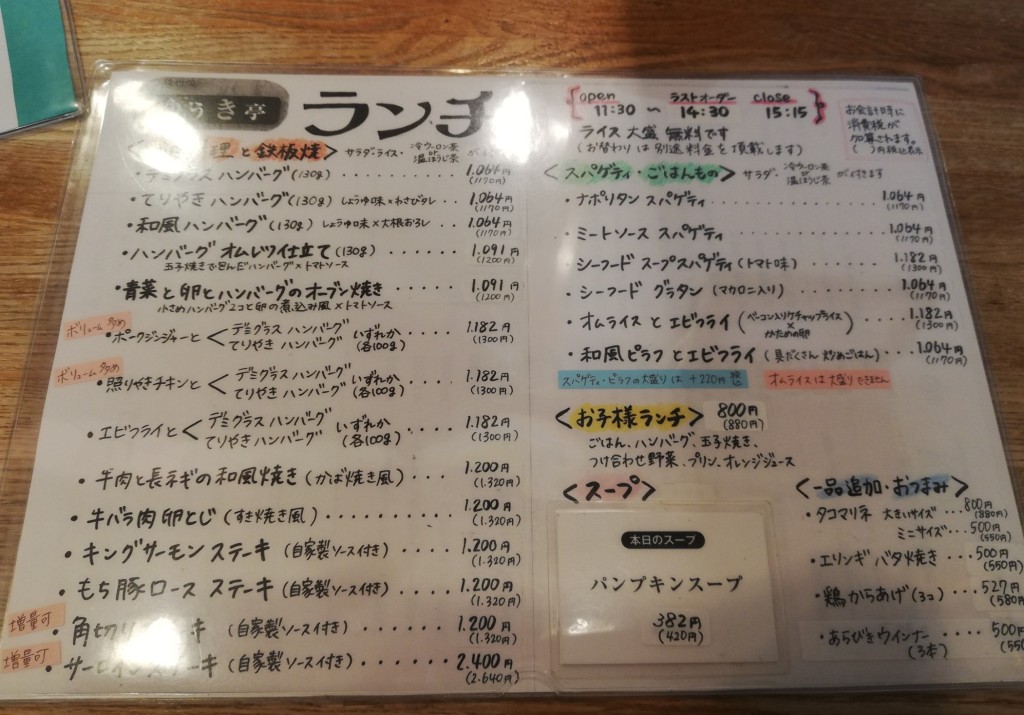 き亭
ランチ
理と鉄板焼>サラダ・ライス・冷ウーロン茶or温ほうじ茶
・デミグラスハンバーグ(130g) 1.064円(1170円)
・てりやきハンバーグ(130g) しょうゆ味×わさびタレ・・1.064円(1170円)
・和風ハンバーグ(130g) しょうゆ味×大根おろし・・1.064円(1170円)
・ハンバーグオムレツ仕立て(130g)・・・・・・・1.091円(1200円)
玉子焼きで包んだハンバーグ×トマトソース
・青菜と卵とハンバーグのオーブン焼き・・・・・1.091円(1200円)
小さめハンバーグ2コと卵の煮込み風×トマトソース
ボリューム多め
・ポークジンジャーと<デミグラスハンバーグ てりやきハンバーグ いずれか(各100g)・・・・1.182円(1300円)
ボリューム多め
・照りやきチキンと<デミグラスハンバーグ てりやきハンバーグ いずれか(各100g)・・・1.182円(1300円)
・エビフライと<デミグラスハンバーグ てりやきハンバーグ いずれか(各100g)・・・・1.182円(1300円)
・牛肉と長ネギの和風焼き(かば焼き風)・・・・1.200円(1.320円)
・牛バラ肉卵とじ(すき焼き風)・・・・・・・・・・1.200円(1.320円)
・キングサーモンステーキ(自家製ソース付き)・・・・・1.200円(1.320円)
・もち豚ロースステーキ(自家製ソース付き)・・・・・1.200円(1.320円)
増量可
・角切り キ(自家製ソース付き)・・・・・・・1.200円(1.320円)
増量可
・サーロインステーキ(自家製ソース付き)・・・・・・2.400円(2.640円)
open ラストオーダー close
11:30 〜 14:30 15:15
ライス大盛無料です
(お替わりは別途料金を頂戴します)
お会計時に
消費税が
加算されます。
( )内税込表示
<スパゲティ・ごはんもの> サラダ・冷ウーロン茶or温ほうじ茶 が付きます
・ナポリタンスパゲティ 1.064円(1170円)
・ミートソーススパゲティ・・・・・・・1.064円(1170円)
・シーフードスープスパゲティ(トマト味)・・・・・・1.182円(1300円)
・シーフードグラタン(マカロニ入り)・・・・・・1.064円(1170円)
・オムライスとエビフライ(ベーコン入りケチャップライス×かための卵)・・1.182円(1300円)
・和風ピラフとエビフライ(具だくさん炒めごはん)・・・1.064円(1170円)
スパゲティ・ピラフの大盛りは+220円税込
オムライスは大盛りできません
<お子様ランチ> 800円(880円)
ごはん、ハンバーグ、玉子焼き、
つけ合わせ野菜、プリン、オレンジジュース
<スープ>
本日のスープ
パンプキンスープ
382円
(420円)
<一品追加・おつまみ>
・タコマリネ 大きいサイズ・・・800円(880円)
ミニサイズ・・・500円(550円)
・エリンギバタ焼き・・・500円(550円)
・鶏からあげ(3コ)・・・527円(580円)
・あらびきウインナー・・・・500円
(3本)